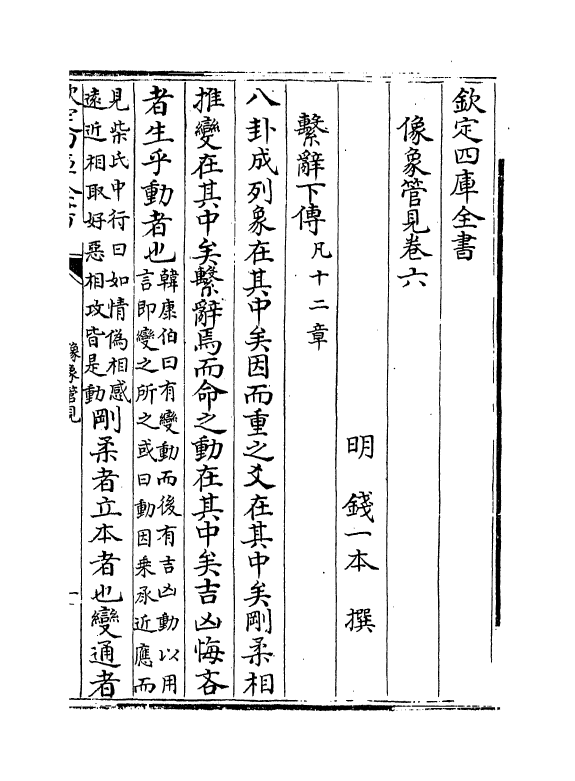 欽定四庫全書
像象管見卷六
明 錢一本 撰
繫辭下傳凡十二章
八卦成列象在其中矣因而重之爻在其中矣剛柔相
推變在其中矣繫辭焉而命之動在其中矣吉凶悔吝
者生乎動者也韓康伯曰有變動而後有吉凶動以用
言即變之所之或曰動因乘承近應而
見柴氏中行曰如情偽相感
遠近相取好惡相攻皆是動剛柔者立本者也變通者
像象管見
一